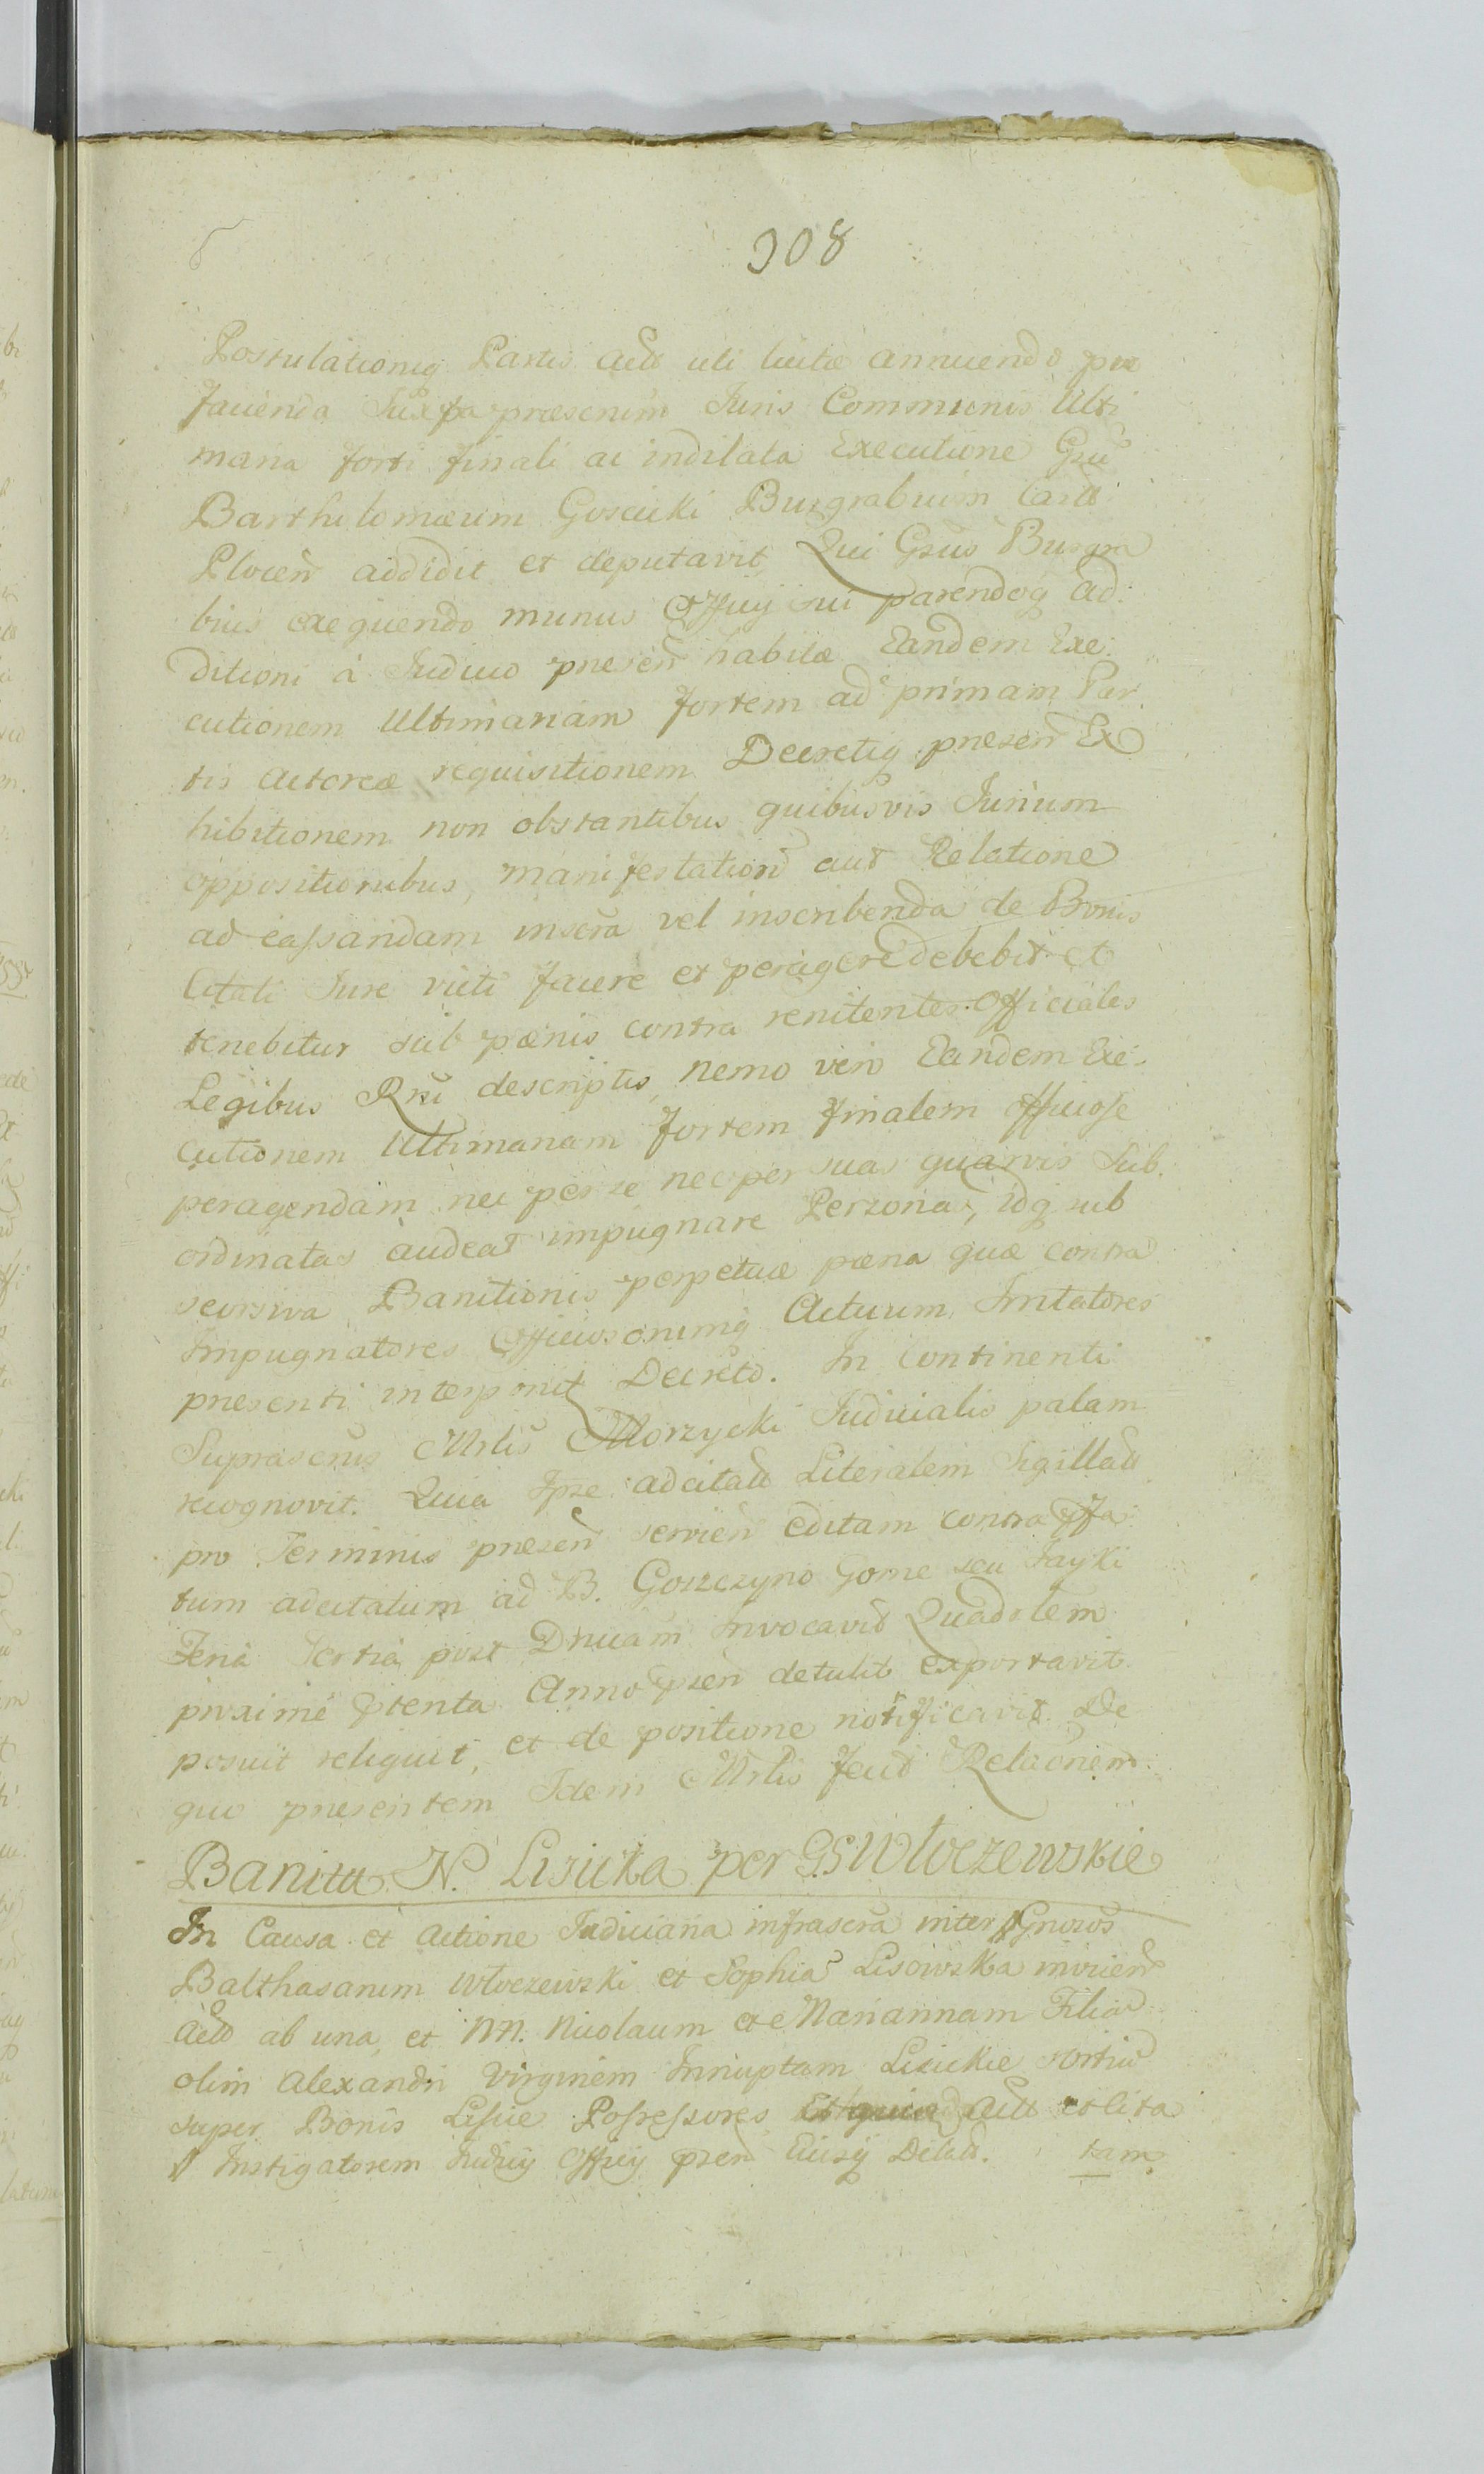 308
Postulationiq Partis Actt uti licitæ annuendo pro
facienda Juxta præscrium Juris Communis Ulti
maria forti finali ac indilata Executione Gsũ
Barthilomæum Goscicki Burgrabium Cartt:
Plocen addidit et deputavit, Qui Gsus Burgra
bius exequendo munus Officij sui parendoq ad:
ditioni à Judicio præsen habitæ Eandem Exe:
cutionem Ultimariam fortem ad primam Par
tis Actoreæ requisitionem Decretiq præsen Ex
hibitionem non obstantibus quibusvis Jurium
oppositionibus, manifestation aut Relatione
ad cassandam inscra vel inscribenda de Bonis
Citati Jure victi facere et peragere debebit et
tenebitur sub pœnis contra renitentes Officiales
Legibus Rni descriptis, nemo vero Eandem Exe:
cutionem Ultimanam fortem finalem officiose
peragendam nec per se nec per suas quasvis Sub.
ordinatas audeat impugnare Personas, idq sub
seorsiva Banitionis perpetuæ pœna quæ contra
Impugnatores Officiosorumq Actuum Irritatores
presenti interponit Decreto. In Continenti
Suprascrus Mrlis Morzycki Judicialis palam
recognovit. Quia Ipse adcitatt Literalem Sigillatt
pro Terminis præsen servien editam contra
tum adcitatum ad B. Goszczyno Gorne seu Fayki
Feria Tertia post Dnicam Invocavit Quadrlem
proxime ptenta Anno psen detulit exportavit
posuit reliquit, et de positione notificavit De
quo presentem Idem Mrlis fecit Relaonem.
Banitt N. Lisicka per G.S. Wloczewskie
In Causa et Actione Judiciaria infrascra inter Gnosos
Balthasarum Wloczewski et Sophia Lisowska invicem
Actt ab una, et NN. Nicolaum ac Mariannam Filia
olim Alexandri Virginem Innuptam Lisickie
super Bonis Lisice Possessores Actt et Cita
Instigatorem Judicij Officij psen Eiusq Delatt. tam